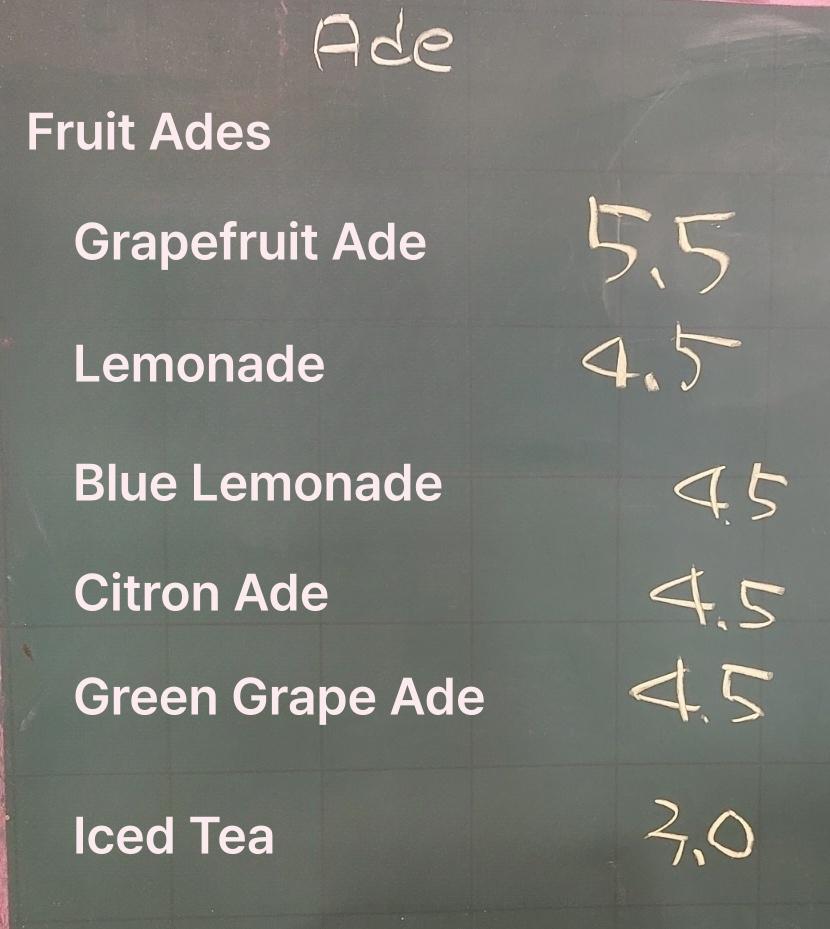 Ade
Fruit Ades
Grapefruit Ade 5.5
Lemonade 4.5
Blue Lemonade 4.5
Citron Ade 4.5
Green Grape Ade 4.5
Iced Tea 3.0